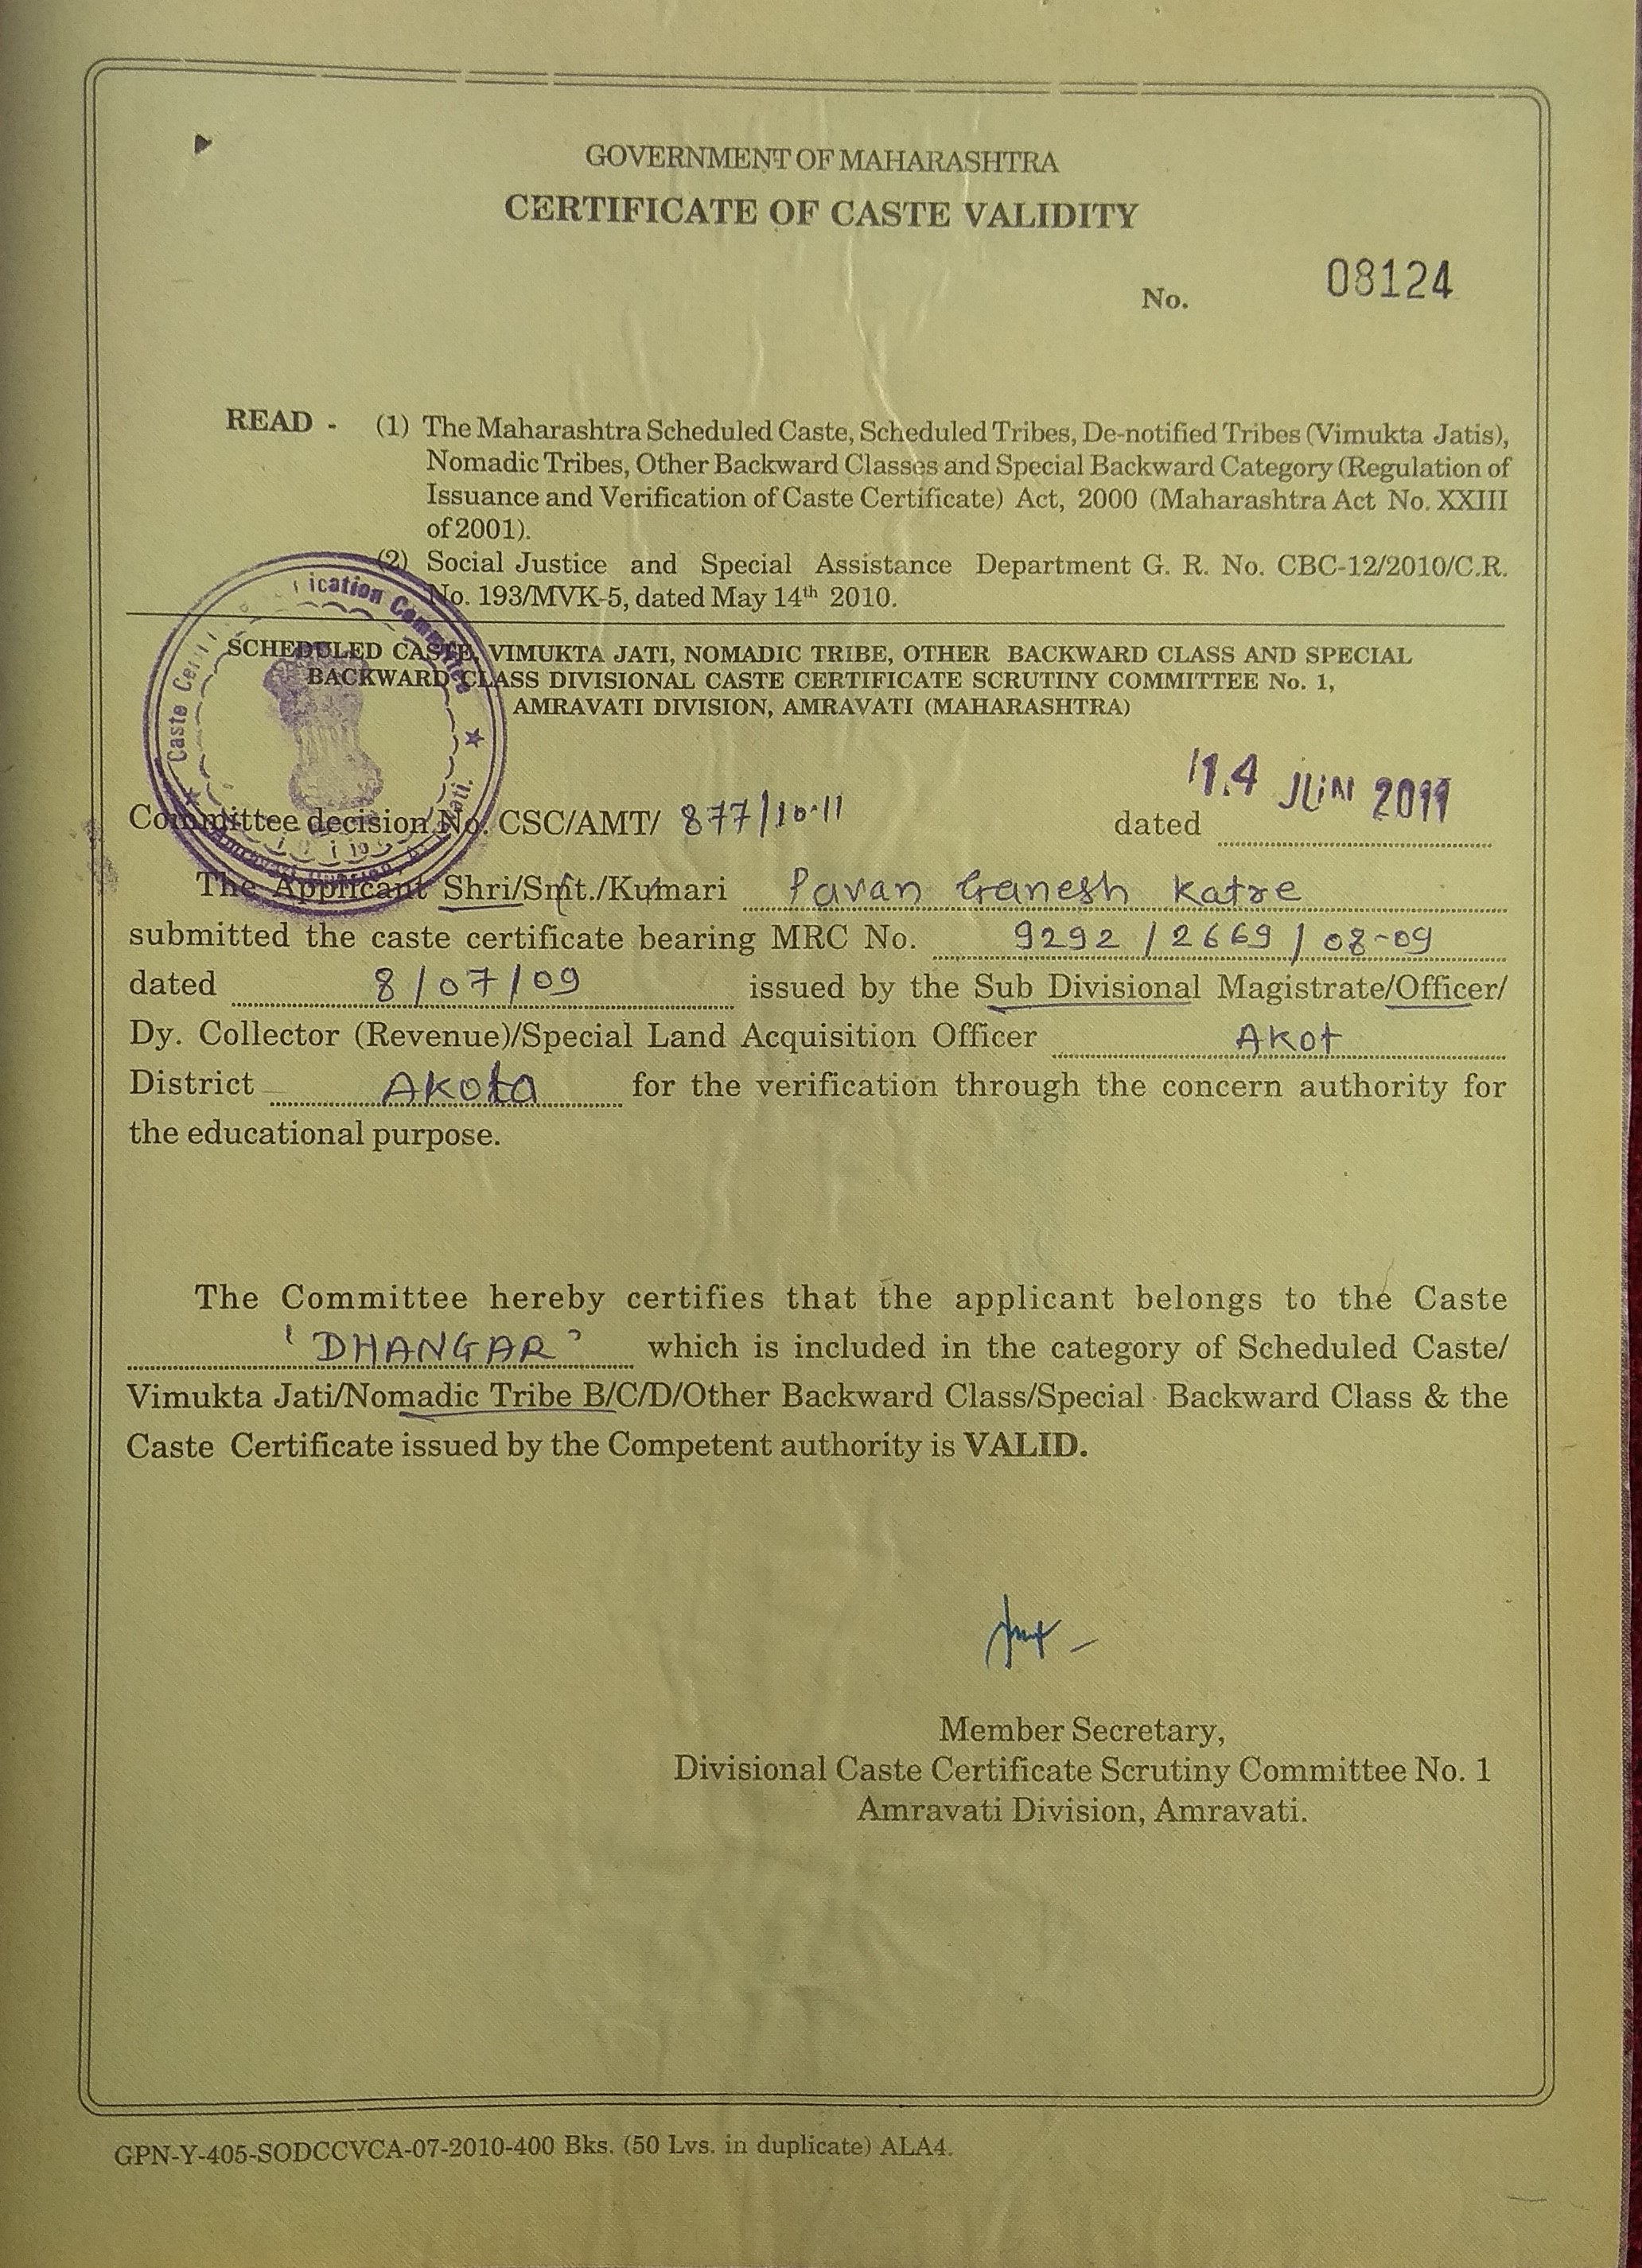 GOVERNMENT OF MAHARASHTRA
CERTIFICATE OF CASTE VALIDITY
No. 08124
READ - (1) The Maharashtra Scheduled Caste, Scheduled Tribes, De-notified Tribes (Vimukta Jatis),
Nomadic Tribes, Other Backward Classes and Special Backward Category (Regulation of
Issuance and Verification of Caste Certificate) Act, 2000 (Maharashtra Act No. XXIII
of 2001).
(2) Social Justice and Special Assistance Department G. R. No. CBC-12/2010/C.R.
No. 193/MVK-5, dated May 14th 2010.
SCHEDULED CASTE, VIMUKTA JATI, NOMADIC TRIBE, OTHER BACKWARD CLASS AND SPECIAL
BACKWARD CLASS DIVISIONAL CASTE CERTIFICATE SCRUTINY COMMITTEE No. 1,
AMRAVATI DIVISION, AMRAVATI (MAHARASHTRA)
Committee decision No. CSC/AMT/ 877/10-11 dated 14 JUN 2011
The Applicant Shri/Smt./Kumari Pavan Ganesh Katre
submitted the caste certificate bearing MRC No. 9292/2669/08-09
dated 8/07/09 issued by the Sub Divisional Magistrate/Officer/
Dy. Collector (Revenue)/Special Land Acquisition Officer Akot
District Akola for the verification through the concern authority for
the educational purpose.
The Committee hereby certifies that the applicant belongs to the Caste
'DHANGAR' which is included in the category of Scheduled Caste/
Vimukta Jati/Nomadic Tribe B/C/D/Other Backward Class/Special Backward Class & the
Caste Certificate issued by the Competent authority is VALID.
Member Secretary,
Divisional Caste Certificate Scrutiny Committee No. 1
Amravati Division, Amravati.
GPN-Y-405-SODCCVCA-07-2010-400 Bks. (50 Lvs. in duplicate) ALA4.